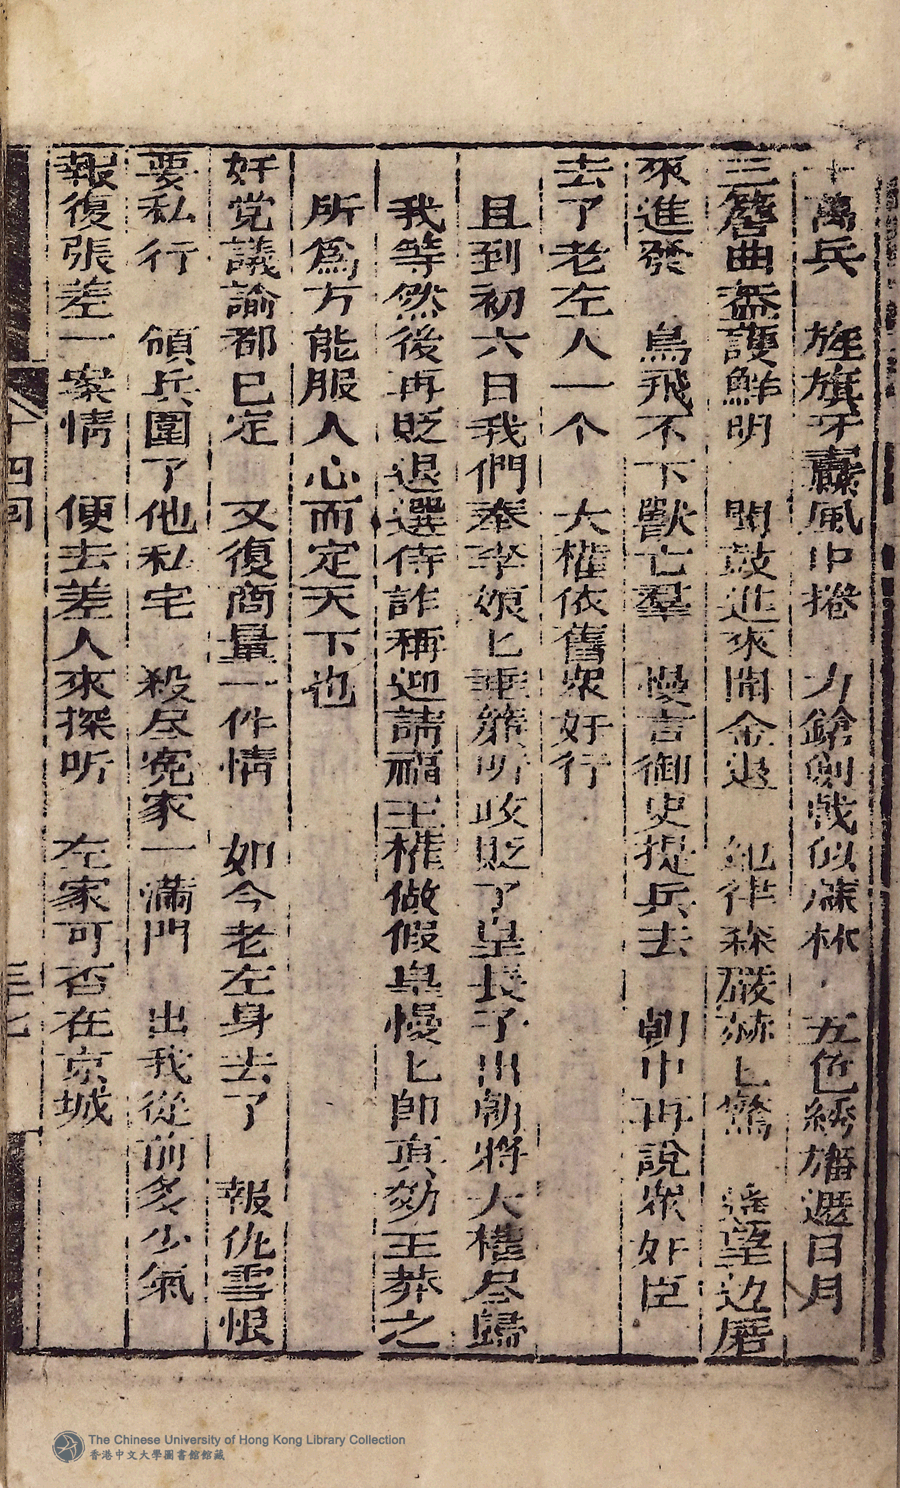 十萬兵　旌旗牙纛風中捲　刀鎗劍戟似蔴林　五色綉旛遮日月
三簷曲葢護鮮明　聞鼓進來聞金退　紀律森嚴赫匕驚　遙望边磨
來進發　鳥飛不下獸亡羣　慢言御史提兵去　朝中再說衆奸臣
去了老左人一个　大權依舊衆奸行
且到初六日我們奉李娘匕垂簾听政貶了皇長子出朝將大權尽歸
我等然後再貶退選侍詐稱迎請福王權做假皇慢匕即真効王莽之
所爲方能服人心而定天下也
奸党議論都已定　又復商量一件情　如今老左身去了　報仇雪恨
要私行　領兵圍了他私宅　殺尽寃家一滿門　出我從前多少氣
報復張差一案情　便去差人來探听　左家可否在京城
十四回
三七
The Chinese University of Hong Kong Library Collection
香港中文大學圖書館館藏